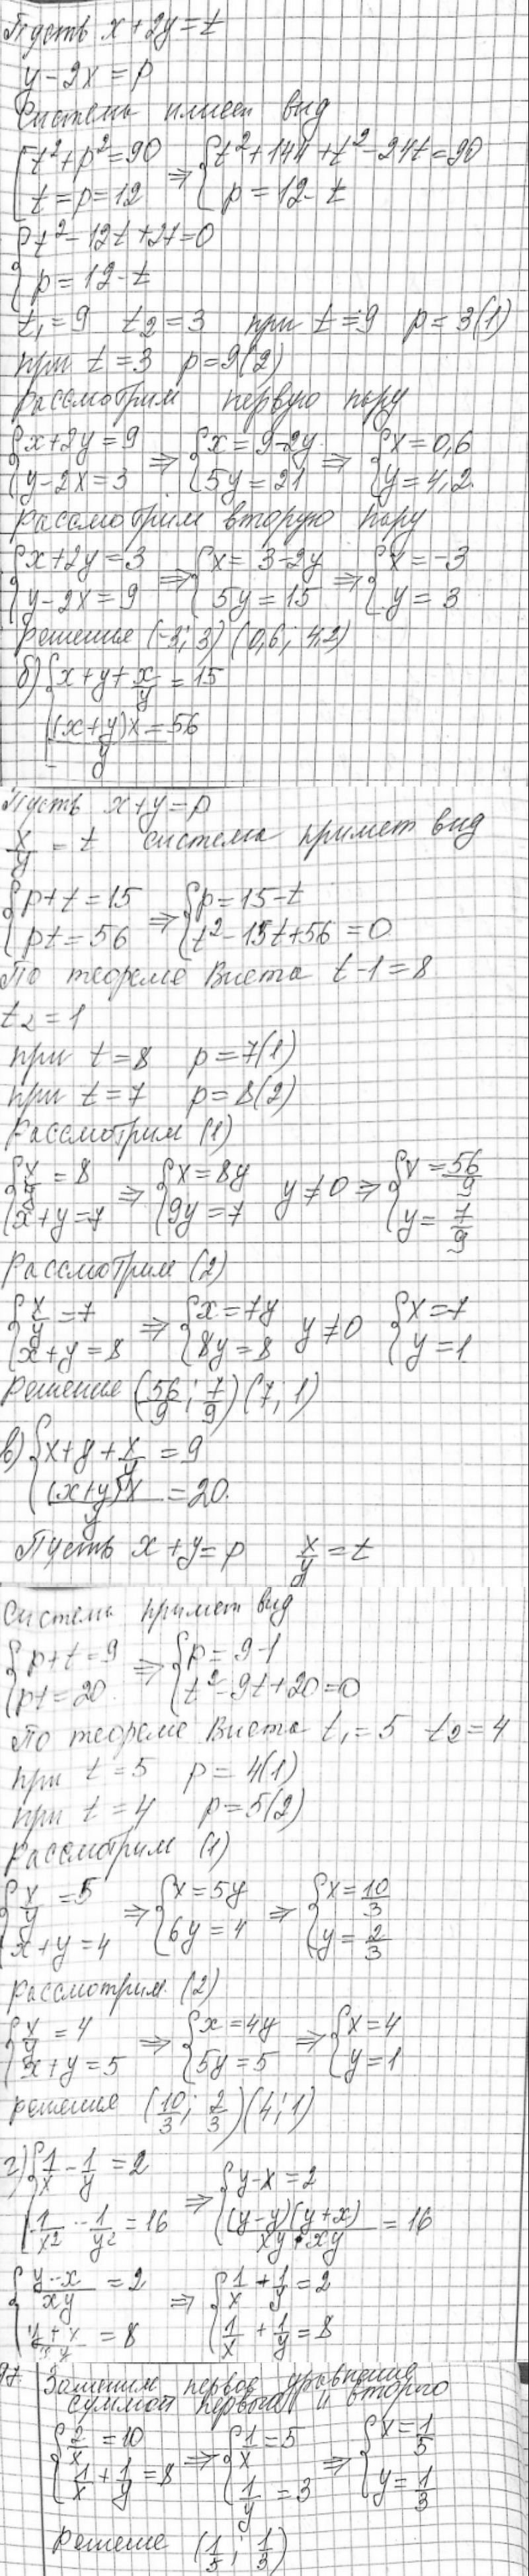 Пусть x + 2y = t
y - 2x = p
Система имеет вид
{t² + p² = 90 ⇒ {t² + 144 + t² - 24t = 90
{t = p = 12 {p = 12 - t
{t² - 12t + 27 = 0
{p = 12 - t
t₁ = 9 t₂ = 3 при t = 9 p = 3(1)
при t = 3 p = 9(2)
Рассмотрим первую пару
{x + 2y = 9 ⇒ {x = 9 - 2y ⇒ {x = 0,6
{y - 2x = 3 {5y = 21 {y = 4,2.
Рассмотрим вторую пару
{x + 2y = 3 ⇒ {x = 3 - 2y ⇒ {x = -3
{y - 2x = 9 {5y = 15 {y = 3
Решение (-3; 3) (0,6; 4,2)
б) {x + y + x/y = 15
{(x + y)x/y = 56
Пусть x + y = p
x/y = t система примет вид
{p + t = 15 ⇒ {p = 15 - t
{pt = 56 {t² - 15t + 56 = 0
По теореме Виета t - 1 = 8
t₂ = 1
при t = 8 p = 7(1)
при t = 7 p = 8(2)
Рассмотрим (1)
{x/y = 8 ⇒ {x = 8y y ≠ 0 ⇒ {x = 56/9
{x + y = 7 {9y = 7 {y = 7/9
Рассмотрим (2)
{x/y = 7 ⇒ {x = 7y y ≠ 0 {x = 7
{x + y = 8 {8y = 8 {y = 1
Решение (56/9; 7/9) (7; 1)
в) {x + y + x/y = 9
{(x + y)x/y = 20.
Пусть x + y = p x/y = t
Система примет вид
{p + t = 9 ⇒ {p = 9 - 1
{pt = 20. {t² - 9t + 20 = 0
По теореме Виета t₁ = 5 t₂ = 4
при t = 5 p = 4(1)
при t = 4 p = 5(2)
Рассмотрим (1)
{x/y = 5 ⇒ {x = 5y ⇒ {x = 10/3
{x + y = 4 {6y = 4 {y = 2/3
Рассмотрим (2)
{x/y = 4 ⇒ {x = 4y ⇒ {x = 4
{x + y = 5 {5y = 5 {y = 1
решение (10/3; 2/3) (4; 1)
г) {1/x - 1/y = 2 ⇒ {y - x = 2
{1/x² - 1/y² = 16 {(y - y)(y + x)/xy · xy = 16
{y - x/xy = 2 ⇒ {1/x + 1/y = 2
{y + x/xy = 8 {1/x + 1/y = 8
97. Заменим первое уравнение
суммой первого и второго
{2/x = 10 ⇒ {1/x = 5 ⇒ {x = 1/5
{1/x + 1/y = 8 {1/y = 3 {y = 1/3
Решение (1/5; 1/3)